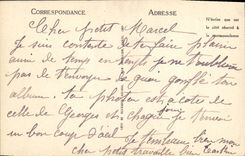 CORRESPONDANCE
ADRESSE
N'écrire que sur
le côté réservé à
la correspondance
Cher petit Marcel
Je suis contente de te faire plaisir
aussi de temps en temps je n'oublierai
pas de t'envoyer de quoi gonfler ton
album. Ta photo est à côté de
celle de Georges et chaque jour
un bon coup d'œil. Je
cher petit travaille bien